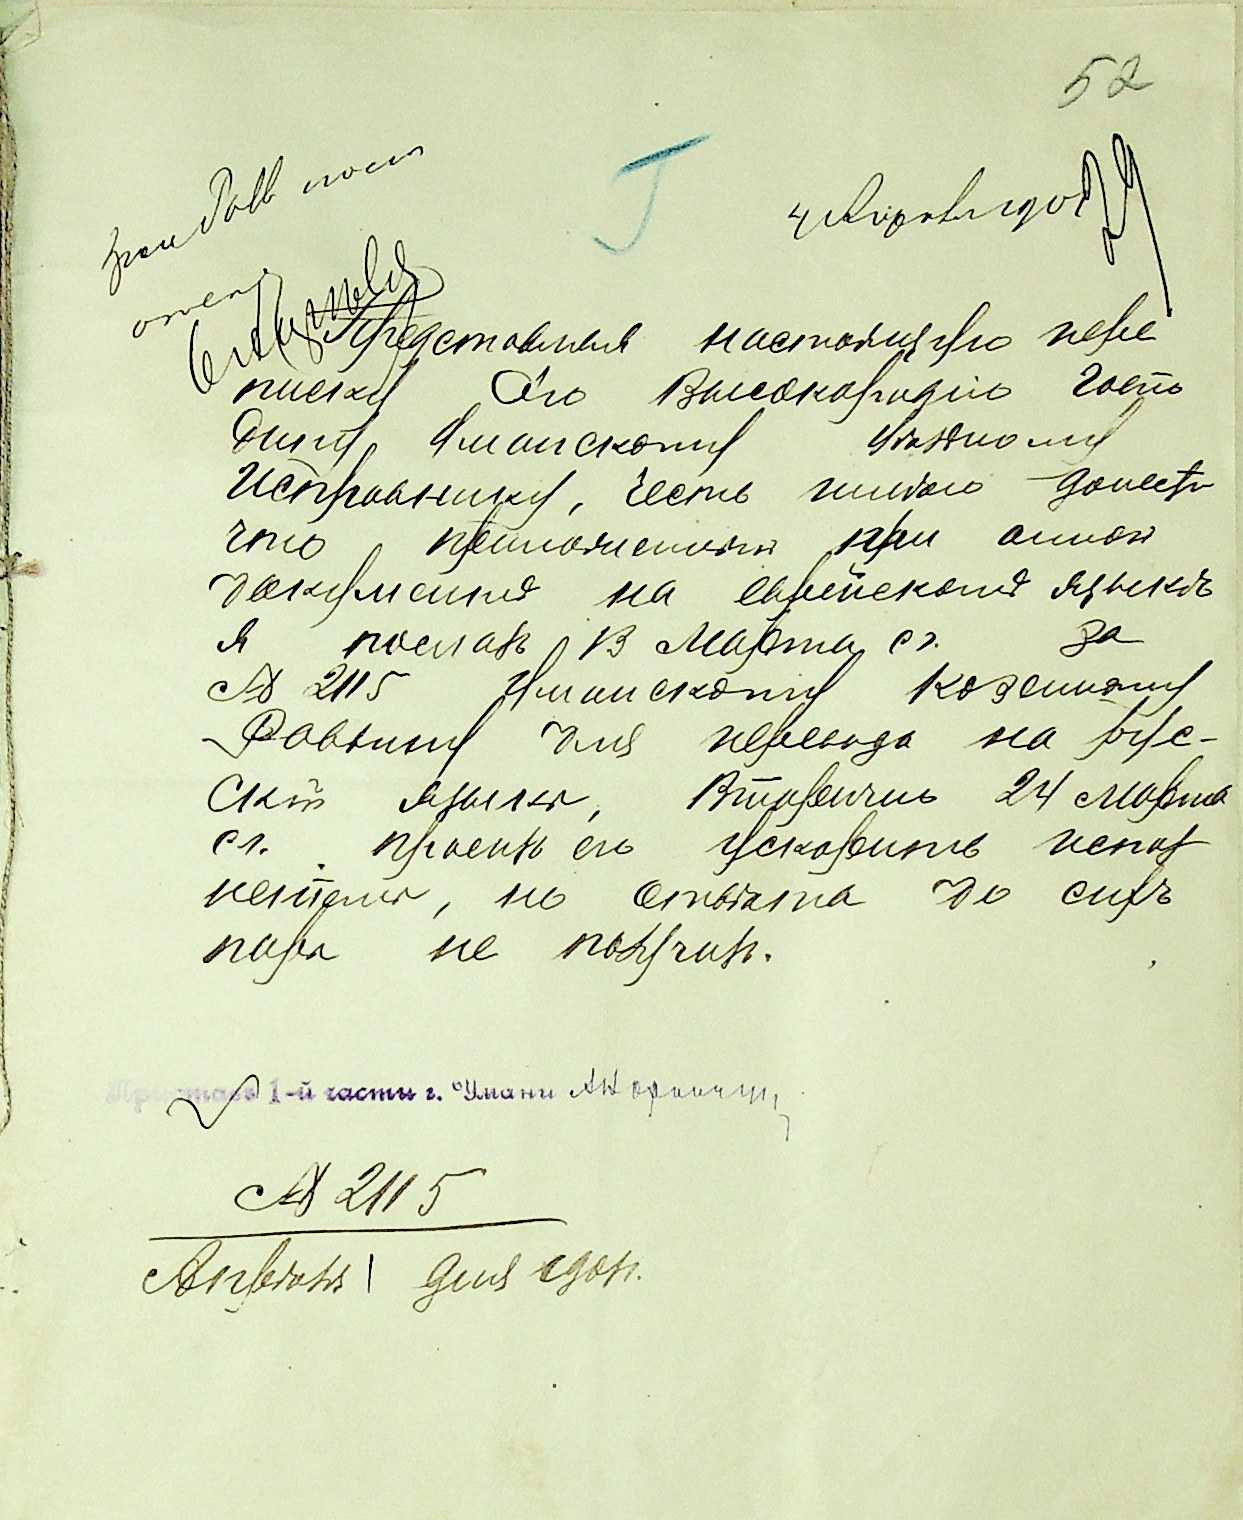 52
Представляя настоящую пере
писку Его Высокородію Госпо
дину Уманскому Уѣздному
Исправнику, честь имѣю донести
что приложенный при оной
документъ на еврейскомъ языкѣ
я послалъ 13 Марта с.г. за
№ 2115 Уманскому Казенному
Раввину для перевода на рус-
скій языкъ, вторично 24 Марта
с.г. просилъ его ускорить испол
неніемъ, но отвѣта до сихъ
поръ не получилъ.
Приставъ 1-й части г. Умани
№ 2115
Апрѣля 1 дня